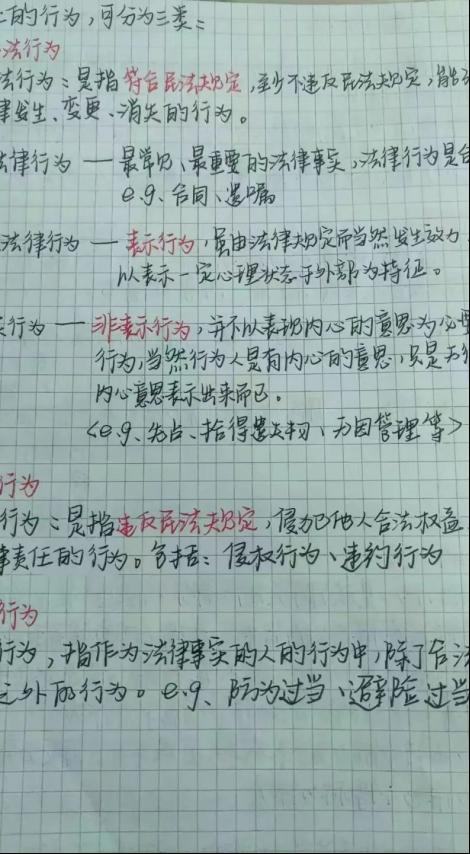 的行为，可分为三类：
法行为
法行为：是指符合民法规定，至少不违反民法规定，能
律发生、变更、消失的行为。
法律行为 — 最常见、最重要的法律事实，法律行为是合
e.g. 合同、遗嘱
法律行为 — 表示行为，虽由法律规定而当然发生效力
以表示一定心理状态于外部为特征。
行为 — 非表示行为，并不以表现内心的意思为必要
行为，当然行为人是有内心的意思，只是无须
内心意思表示出来而已。
<e.g. 先占、拾得遗失物、无因管理等>
行为
行为：是指违反民法规定，侵犯他人合法权益
责任的行为。包括：侵权行为、违约行为
行为
行为，指作为法律事实的人的行为中，除了合法
之外的行为。e.g. 防卫过当、避险过当